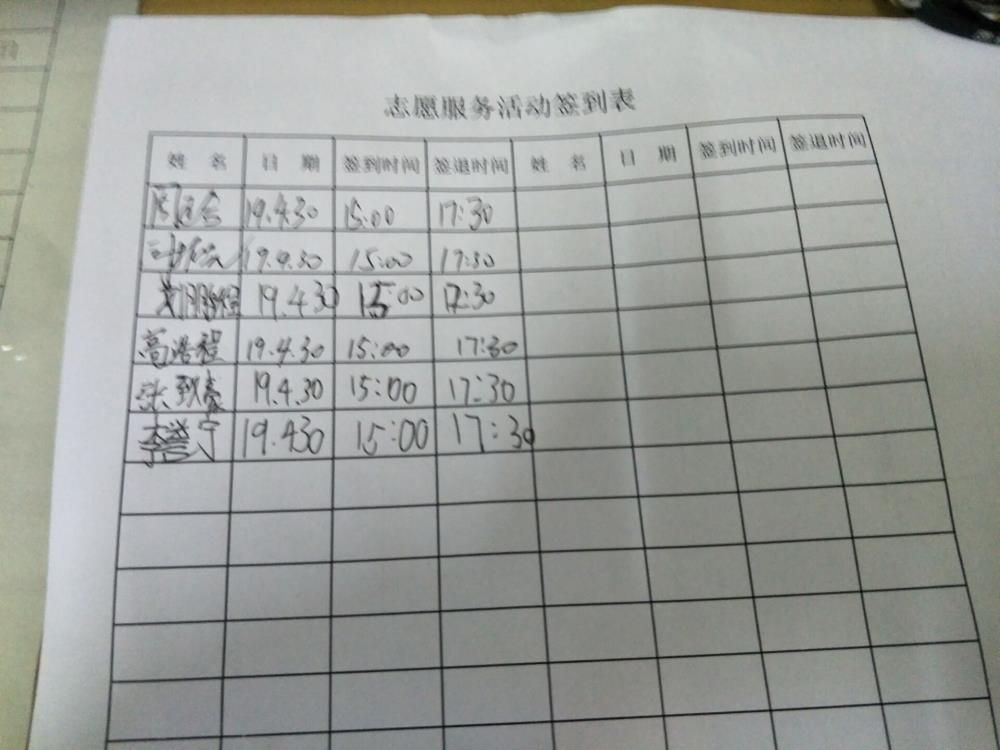 志愿服务活动签到表
姓 名 日 期 签到时间 签退时间 姓 名 日 期 签到时间 签退时间
19.4.30 15:00 17:30
19.4.30 15:00 17:30
19.4.30 15:00 17:30
高浩程 19.4.30 15:00 17:30
张 19.4.30 15:00 17:30
19.430 15:00 17:30